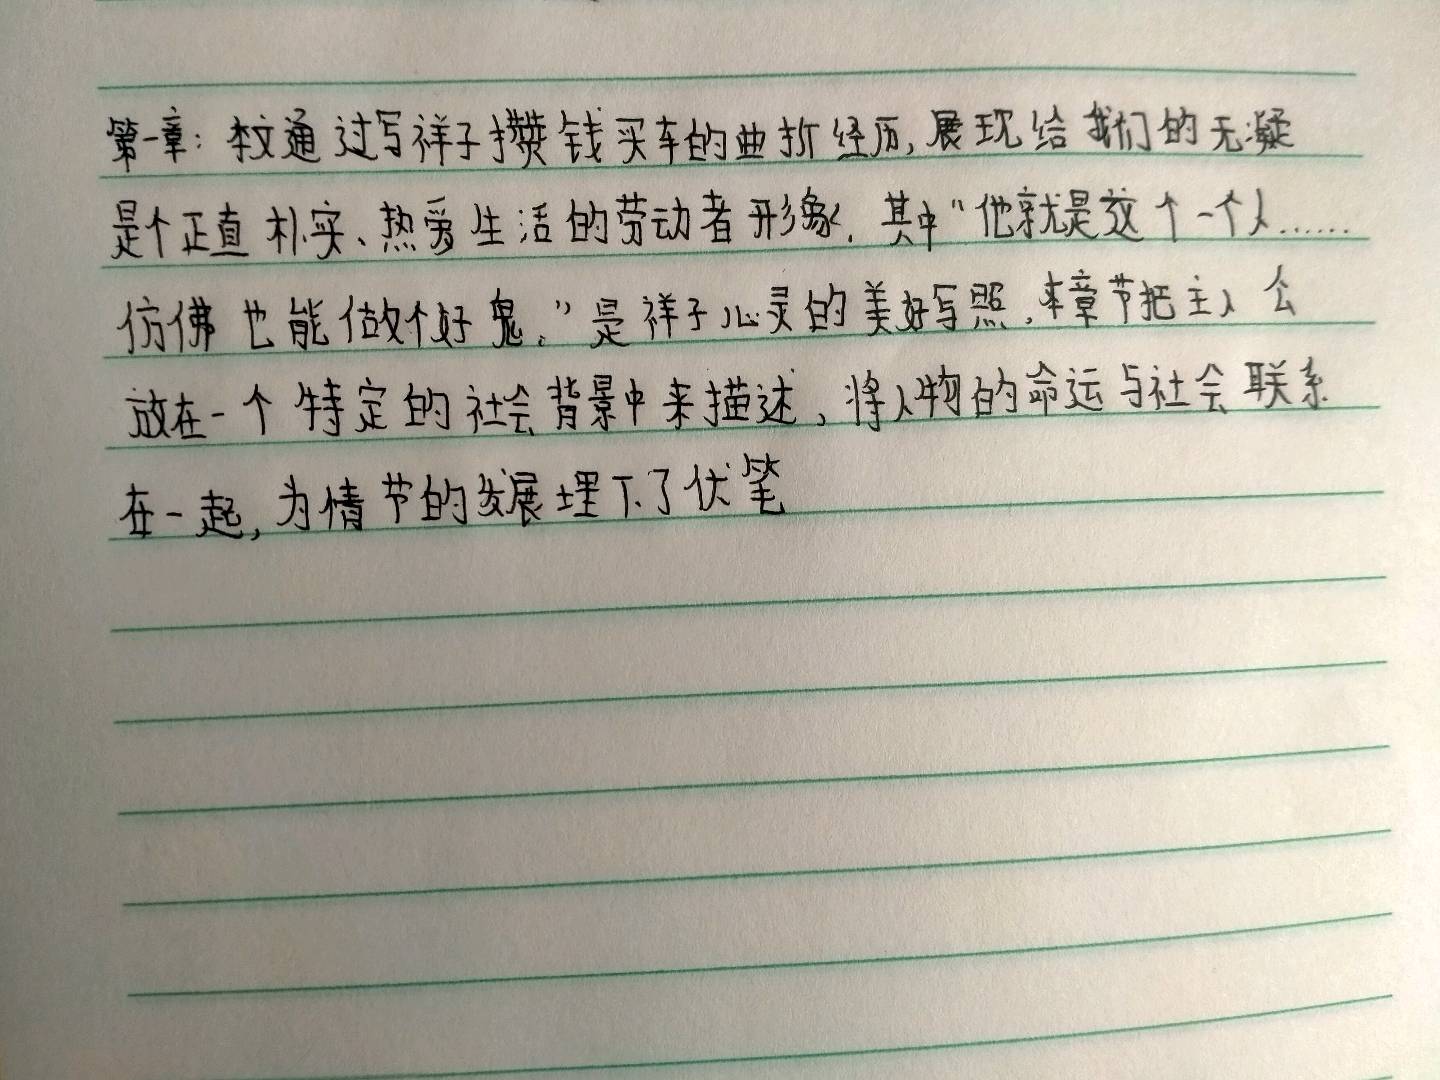 第一章：本文通过写祥子攒钱买车的曲折经历,展现给我们的无疑
是个正直朴实、热爱生活的劳动者形象．其中“他就是这个一个人……
仿佛也能做个好鬼。”是祥子心灵的美好写照．本章节把主人公
放在一个特定的社会背景中来描述，将人物的命运与社会联系
在一起,为情节的发展埋下了伏笔